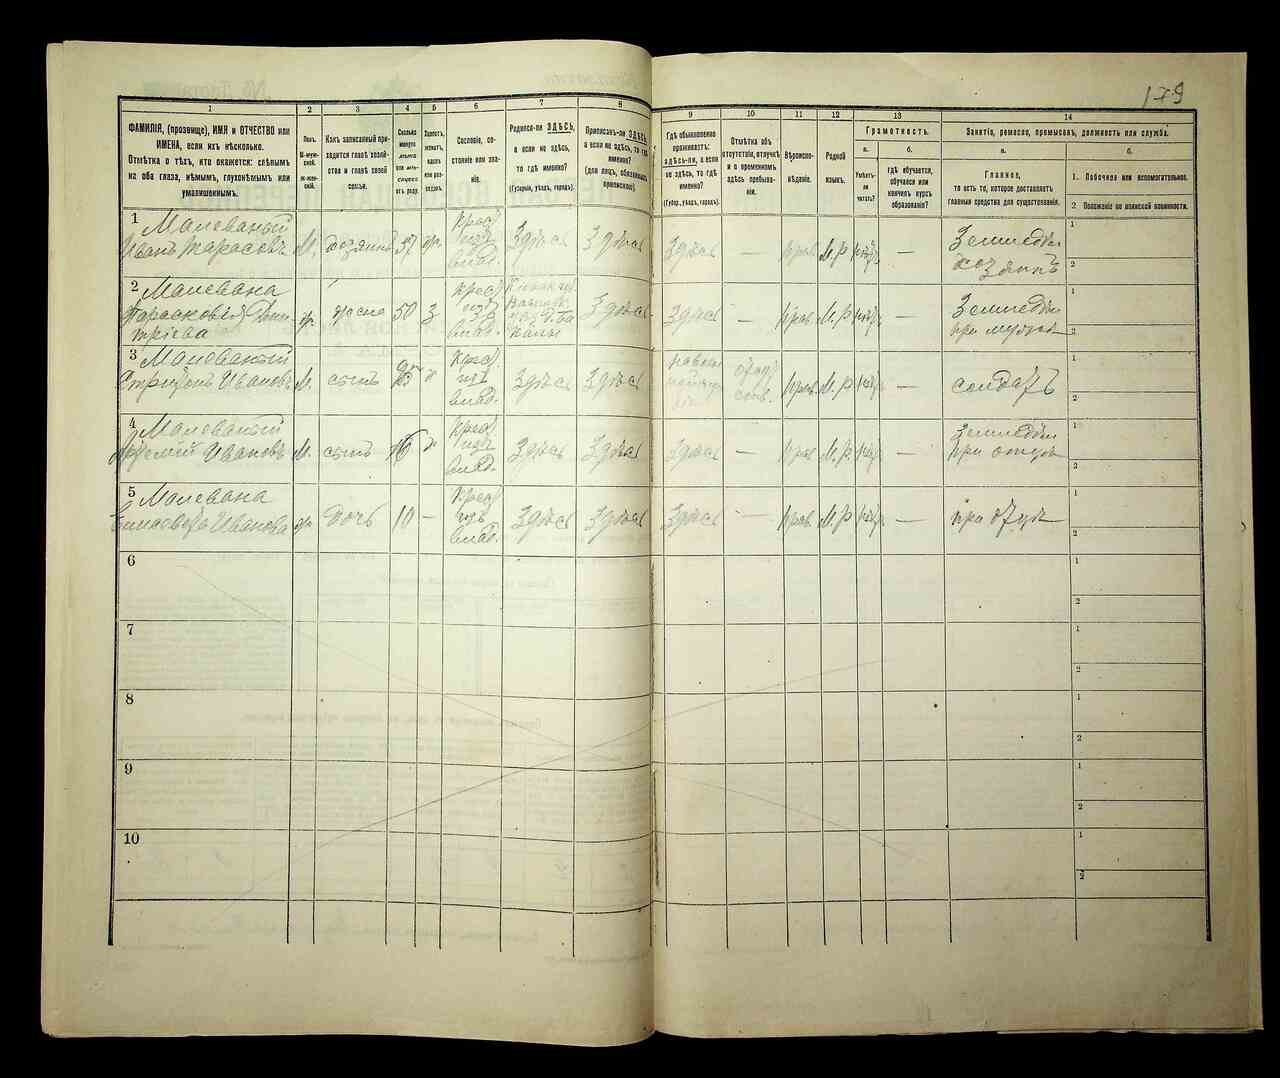 179
1
ФАМИЛІЯ, (прозвище), ИМЯ и ОТЧЕСТВО или
ИМЕНА, если ихъ нѣсколько.
Отмѣтка о тѣхъ, кто окажется: слѣпымъ
на оба глаза, нѣмымъ, глухонѣмымъ или
умалишеннымъ.
2
Полъ.
М-муж-
ской.
ж-жен-
скій.
3
Какъ записанный при-
ходится главѣ хозяй-
ства и главѣ своей
семьи.
4
Сколько
минуло
лѣтъ
или мѣ-
сяцевъ
отъ роду.
5
Холостъ,
женатъ,
вдовъ
или раз-
веденъ.
6
Сословіе, со-
стояніе или зва-
ніе.
7
Родился-ли ЗДѢСЬ,
а если не здѣсь,
то гдѣ именно?
(Губернія, уѣздъ, городъ).
8
Приписанъ-ли ЗДѢСЬ,
а если не здѣсь, то гдѣ
именно?
(для лицъ, обязанныхъ
припиской)
9
Гдѣ обыкновенно
проживаетъ:
здѣсь-ли, а если
не здѣсь, то гдѣ
именно?
(Губерн., уѣздъ, городъ).
10
Отмѣтка объ
отсутствіи, отлучкѣ
и о временномъ
здѣсь пребыва-
ніи.
11
Вѣроиспо-
вѣданіе.
12
Родной
языкъ.
13
Грамотность.
а.
Умѣетъ-
ли
читать?
б.
гдѣ обучается,
обучался или
кончилъ курсъ
образованія?
14
Занятіе, ремесло, промыселъ, должность или служба.
а.
Главное,
то есть то, которое доставляетъ
главныя средства для существованія.
б.
1. Побочное или вспомогательное.
2. Положеніе по воинской повинности.
1
Малеваный
Иванъ Тарасовъ
М.
хозяинъ
57
Крес.
изъ
влад.
Здѣсь
Здѣсь
Здѣсь
—
Прав
М.Р.
—
Земледѣл.
хозяинъ
1
2
2
Малевана
Парасковія Дми
тріева
50
З
Крес.
изъ
влад.
Здѣсь
Здѣсь
—
Прав
М.Р.
—
Земледѣл.
при мужѣ
1
2
3
Малеваный
Ивановъ
М.
сынъ
Крес.
изъ
влад.
Здѣсь
Здѣсь
Прав.
М.Р.
—
солдатъ
1
2
4
Малеваный
Ивановъ
М.
сынъ
16
Крес.
изъ
влад.
Здѣсь
Здѣсь
Здѣсь
—
Прав
М.Р.
—
Земледѣл.
при отцѣ
1
2
5
Малевана
Елисавета Иванова
дочь
10
—
Крес.
изъ
влад.
Здѣсь
Здѣсь
Здѣсь
—
Прав.
М.Р.
—
при отцѣ
1
2
6
1
2
7
1
2
8
1
2
9
1
2
10
1
2